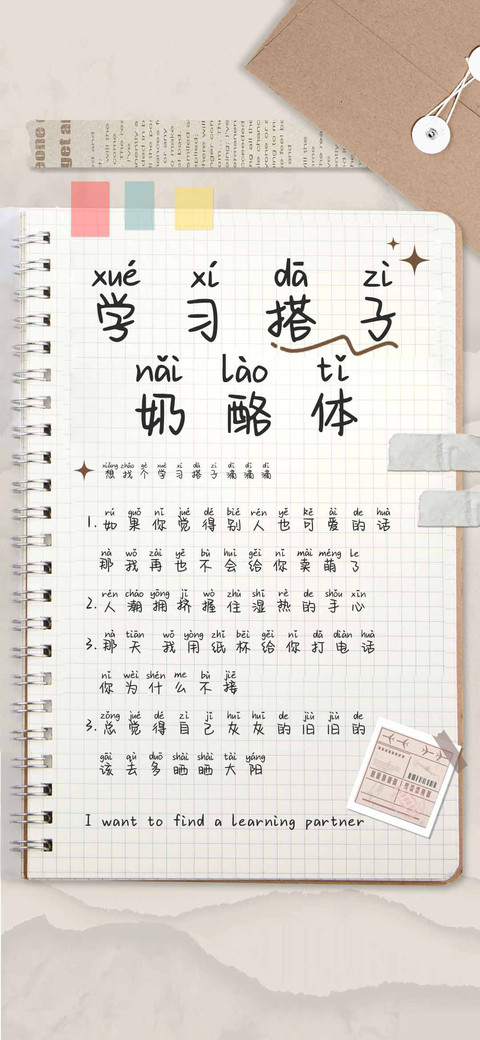 xué xí dā zi
学习搭子
nǎi lào tǐ
奶酪体
xiǎng zhǎo gè xué xí dā zi dī dī dī
想找个学习搭子滴滴滴
rú guǒ nǐ jué dé bié rén yě kě ài de huà
1.如果你觉得别人也可爱的话
nà wǒ zài yě bù huì gěi nǐ mài méng le
那我再也不会给你卖萌了
rén cháo yōng jǐ wò zhù shī rè de shǒu xīn
2.人潮拥挤握住湿热的手心
nà tiān wǒ yòng zhǐ bēi gěi nǐ dǎ diàn huà
3.那天 我用纸杯给你打电话
nǐ wèi shén me bù jiē
你为什么不接
zǒng jué dé zì jǐ huī huī de jiù jiù de
3.总觉得自己灰灰的旧旧的
gāi qù duō shài shài tài yáng
该去多晒晒太阳
I want to find a learning partner